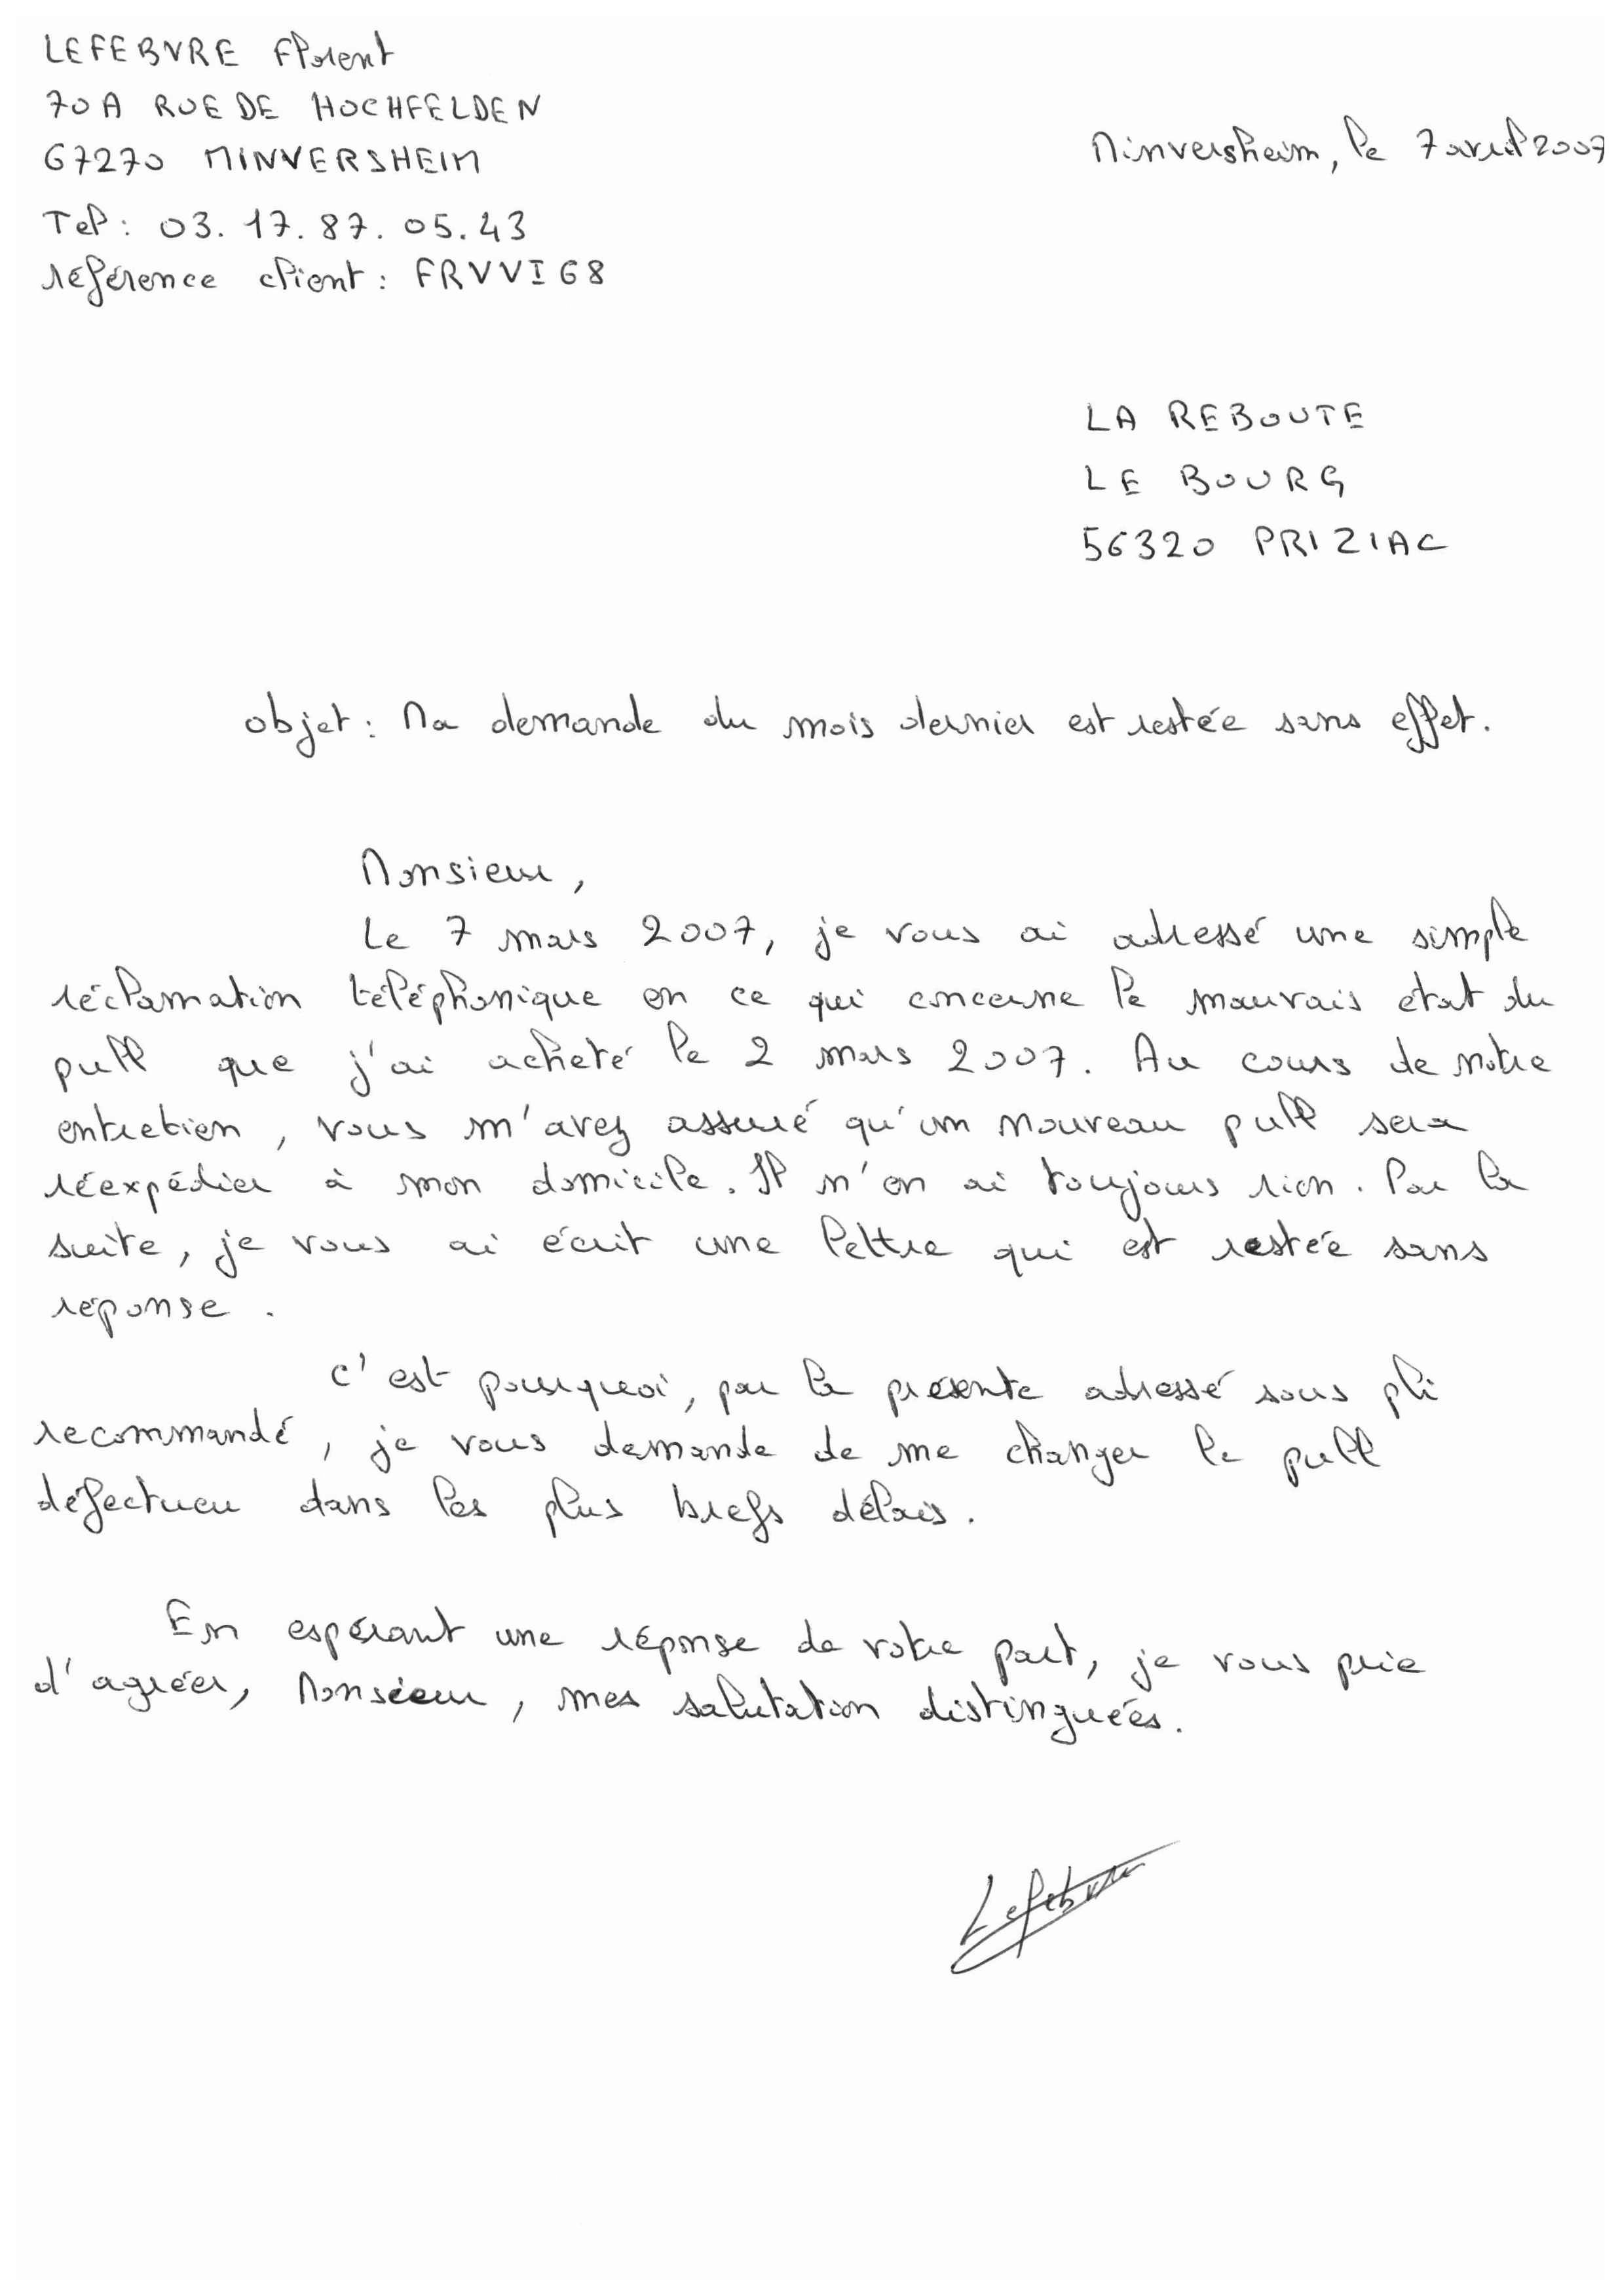 LEFEBVRE Florent
70A RUE DE HOCHFELDEN
67270 MINVERSHEIM
Minversheim, le 7 avril 2007
Tel : 03.17.87.05.43
référence client : FRVVI68
LA REBOUTE
LE BOURG
56320 PRIZIAC
objet : Ma demande du mois dernier est restée sans effet.
Monsieur,
Le 7 mars 2007, je vous ai adressé une simple
réclamation téléphonique en ce qui concerne le mauvais état du
pull que j'ai acheté le 2 mars 2007. Au cours de notre
entretien, vous m'avez assuré qu'un nouveau pull sera
réexpédier à mon domicile. Il n'en ai toujours rien. Par la
suite, je vous ai écrit une lettre qui est restée sans
réponse.
C'est pourquoi, par la présente adressé sous pli
recommandé, je vous demande de me changer le pull
défectueu dans les plus brefs délais.
En espérant une réponse de votre part, je vous prie
d'agréer, Monsieur, mes salutation distinguées.
Lefebvre